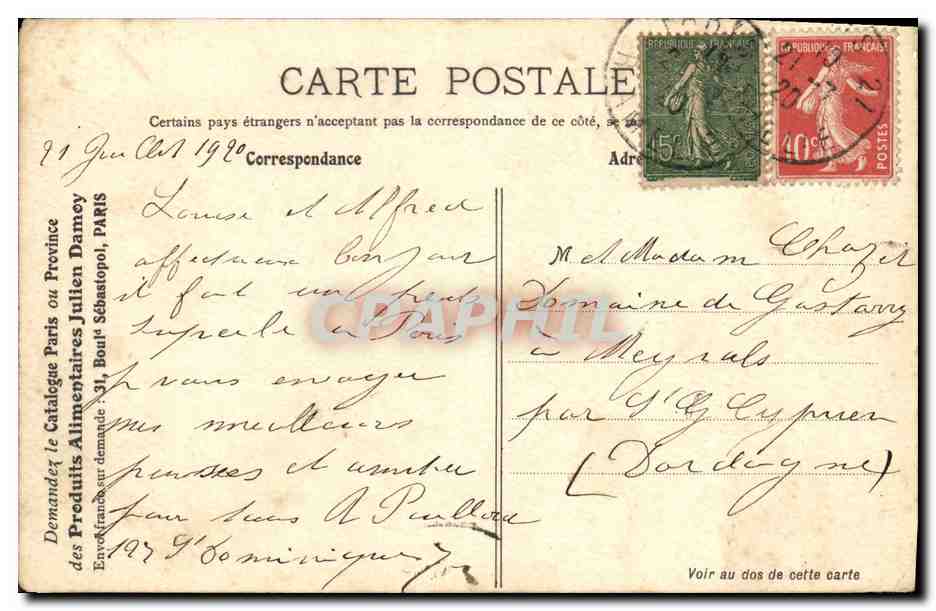 CARTE POSTALE
Certains pays étrangers n'acceptant pas la correspondance de ce côté, se
21 Juillet 1920
Correspondance
Adre
RÉPUBLIQUE FRANÇAISE
15c
RÉPUBLIQUE FRANÇAISE
40c
POSTES
Demandez le Catalogue Paris ou Province
des Produits Alimentaires Julien Damoy
Envoi franco sur demande : 31, Boulᵈ Sébastopol, PARIS
Louise et Alfred
affectueux bonjour
il fait un temps
superbe à Paris
je vous envoyer
mes meilleurs
pensées et
pour tous A
197 St Dominique
M et Madam Chazet
Domaine de
à Meyrals
par St Cyprien
(Dordogne)
CPAPHIL
Voir au dos de cette carte